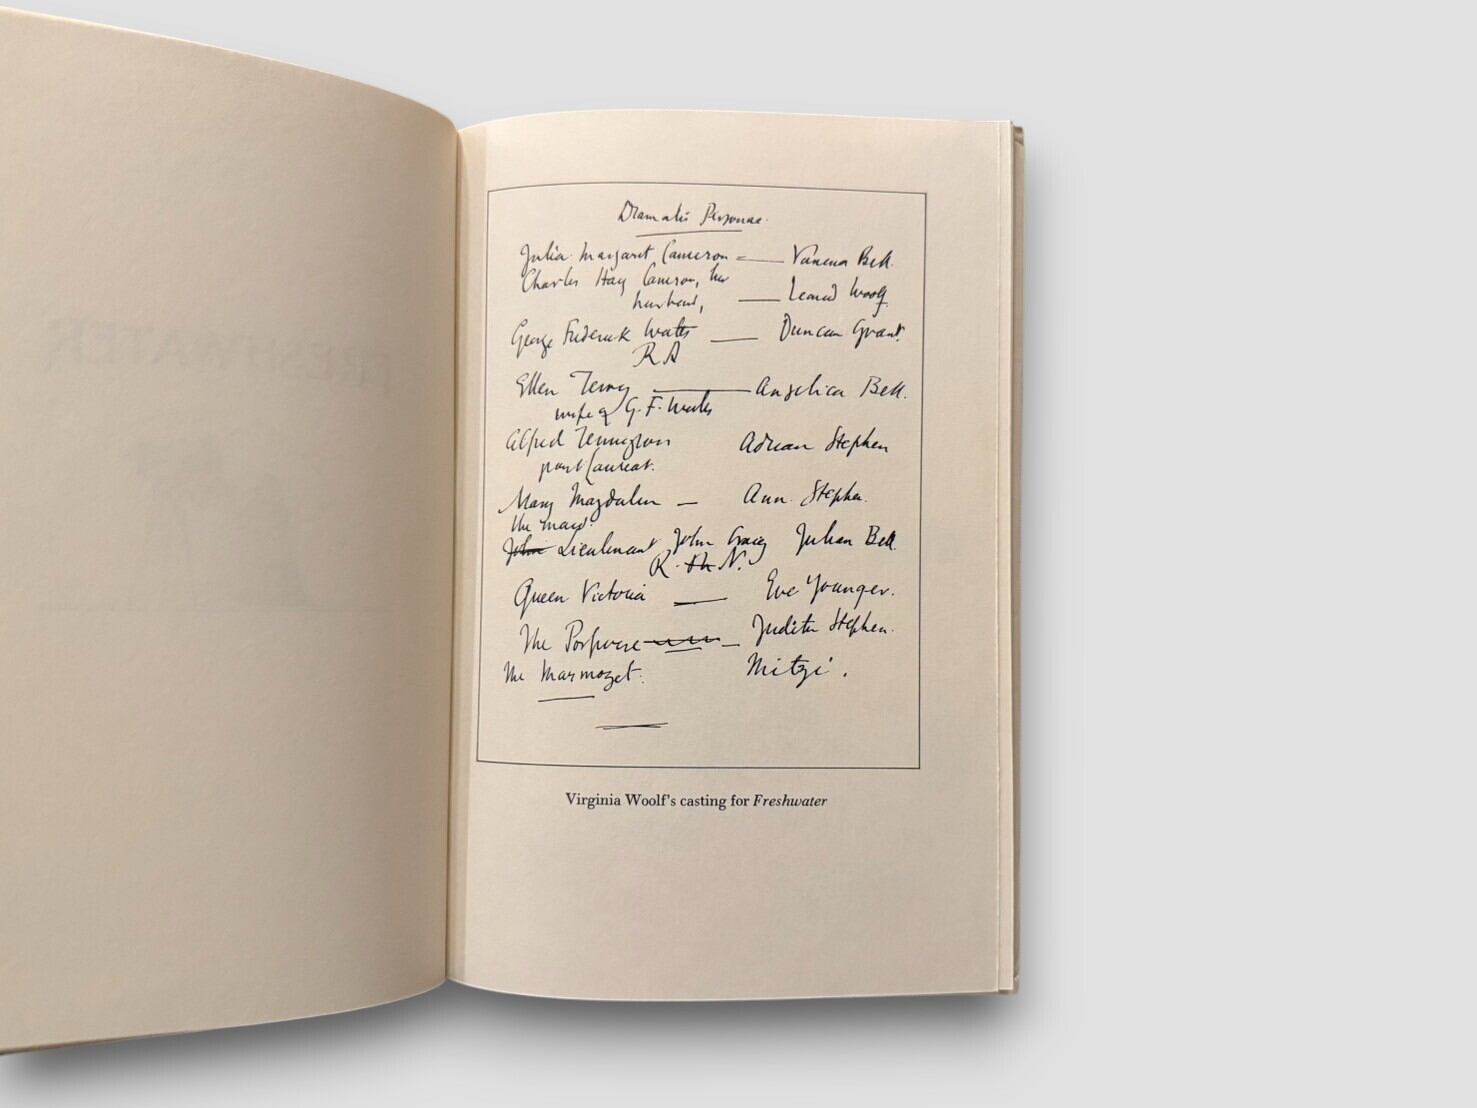 Dramatis Personae.
Julia Margaret Cameron — Vanessa Bell.
Charles Hay Cameron, her
husband, — Leonard Woolf.
George Frederick Watts — Duncan Grant.
R A
Ellen Terry — Angelica Bell.
wife of G. F. Watts
Alfred Tennyson Adrian Stephen
poet laureat.
Mary Magdalen — Ann. Stephen.
the maid.
John Lieutenant John Craig Julian Bell.
R. N.
Queen Victoria — Eve Younger.
The Porpoise — Judith Stephen.
The Marmozet. Mitzi.
Virginia Woolf's casting for Freshwater
FRESHWATER